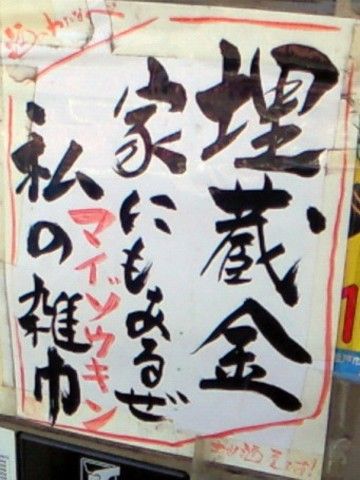 埋蔵金
家にもあるぜ
マイゾウキン
私の雑巾